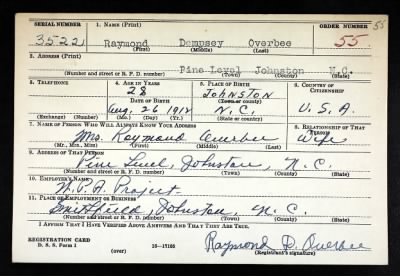 55
SERIAL NUMBER 1. NAME (Print) ORDER NUMBER
3522 Raymond Dempsey Overbee 55.
(First) (Middle) (Last)
2. ADDRESS (Print)
Pine Level Johnston N.C.
(Number and street or R. F. D. number) (Town) (County) (State)
3. TELEPHONE 4. AGE IN YEARS 5. PLACE OF BIRTH 6. COUNTRY OF CITIZENSHIP
28 Johnston
DATE OF BIRTH (Town or county)
Aug. 26 1912 N.C. U.S.A.
(Exchange) (Number) (Mo.) (Day) (Yr.) (State or country)
7. NAME OF PERSON WHO WILL ALWAYS KNOW YOUR ADDRESS 8. RELATIONSHIP OF THAT PERSON
Mrs. Raymond Overbee Wife
(Mr., Mrs., Miss) (First) (Middle) (Last)
9. ADDRESS OF THAT PERSON
Pine Level, Johnston, N.C.
(Number and street or R. F. D. number) (Town) (County) (State)
10. EMPLOYER'S NAME
W.P.A. Project.
11. PLACE OF EMPLOYMENT OR BUSINESS
Smithfield, Johnston, N.C.
(Number and street or R. F. D. number) (Town) (County) (State)
I AFFIRM THAT I HAVE VERIFIED ABOVE ANSWERS AND THAT THEY ARE TRUE.
REGISTRATION CARD
D. S. S. Form 1 16—17105 Raymond D. Overbee
(over) (Registrant's signature)